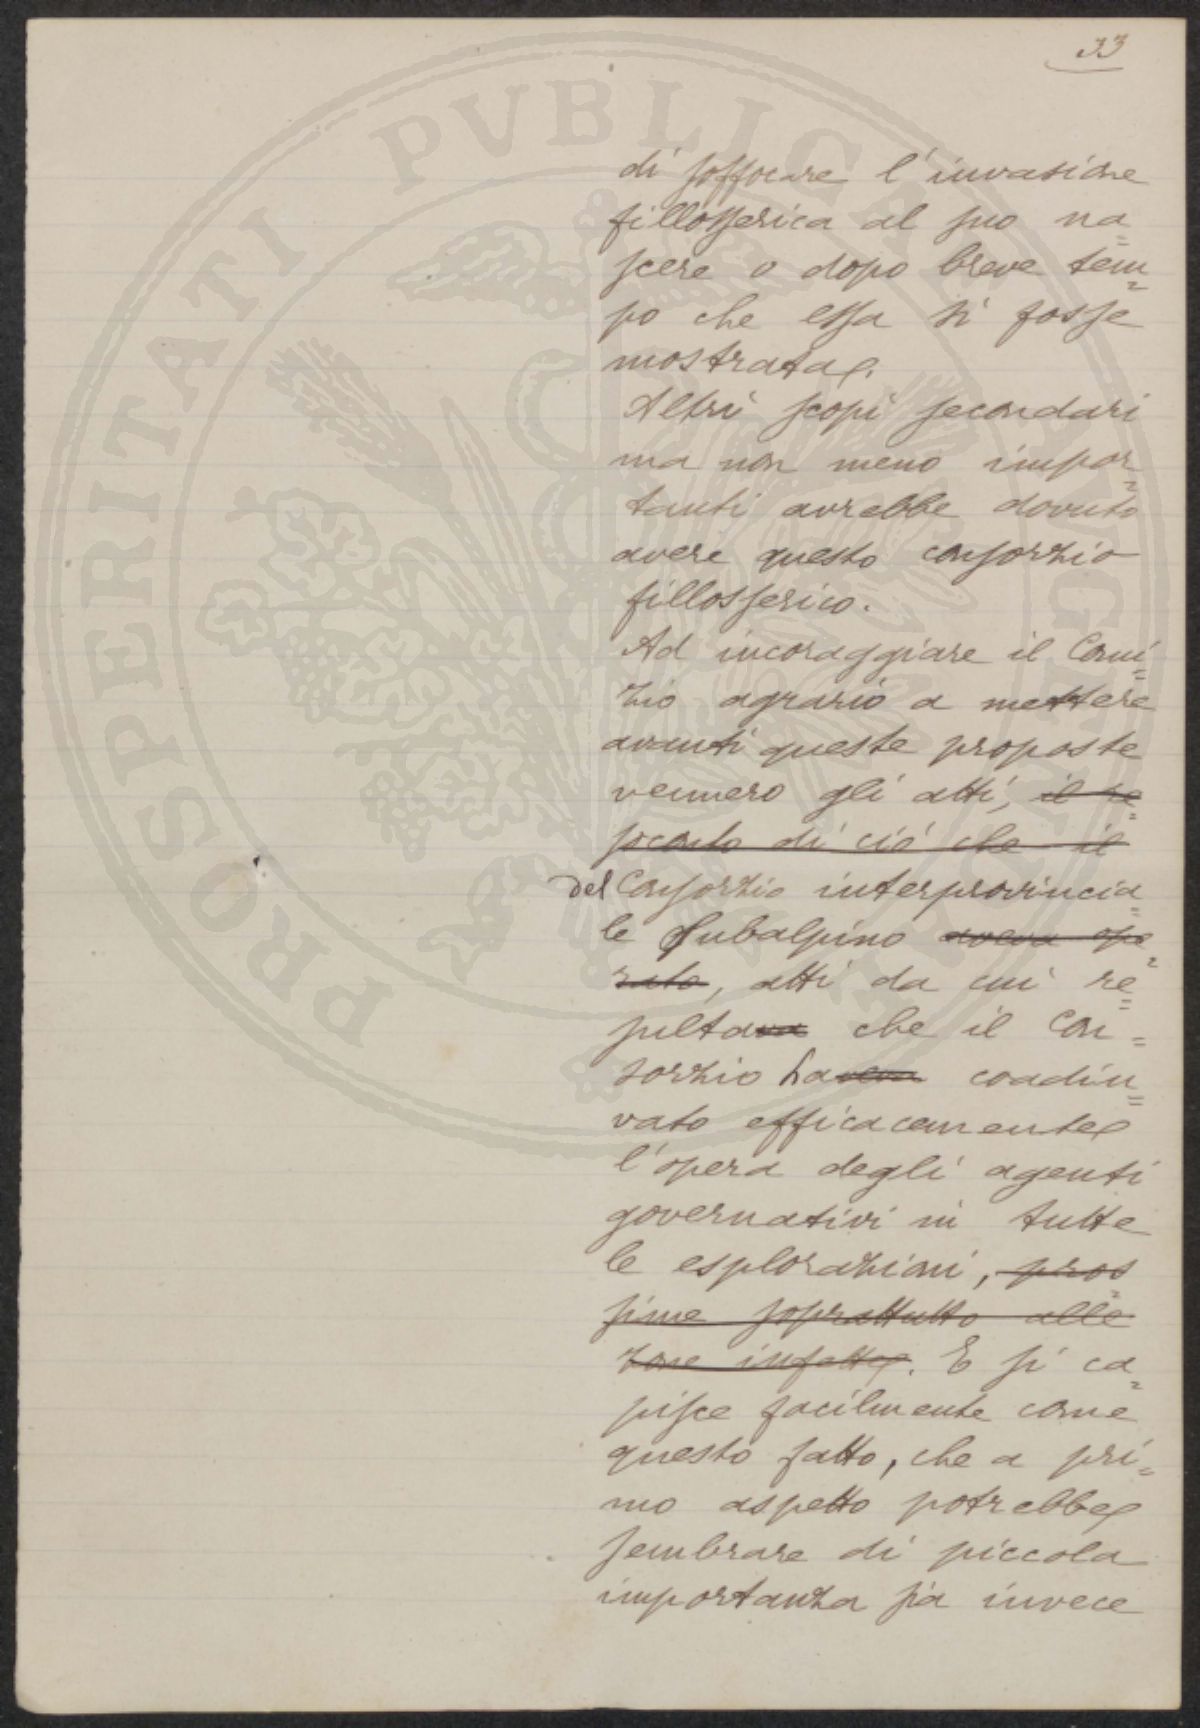 33
di soffocare l'invasione
fillosserica al suo na=
scere o dopo breve tem=
po che essa si fosse
mostrata.
Altri scopi secondari
ma non meno impor=
tanti avrebbe dovuto
avere questo consorzio
fillosserico.
Ad incoraggiare il Comi=
zio agrario a mettere
avanti queste proposte
vennero gli atti, il re=
soconto di ciò che il
del Consorzio interprovincia=
le Subalpino aveva ope=
rato, atti da cui re=
sultava che il Con=
sorzio haveva coadiu=
vato efficacemente
l'opera degli agenti
governativi in tutte
le esplorazioni, pros=
sime soprattutto alle
zone infette. E si ca=
pisce facilmente come
questo fatto, che a pri=
mo aspetto potrebbe
sembrare di piccola
importanza sia invece
PROSPERITATI PVBLICAE AVGENDAE